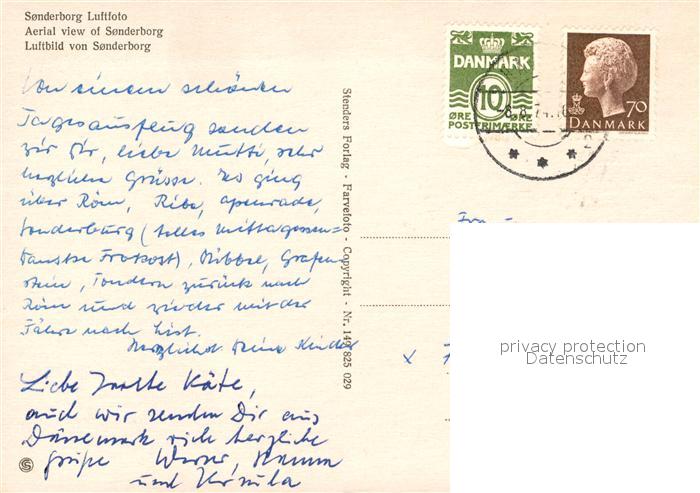 Sønderborg Luftfoto
Aerial view of Sønderborg
Luftbild von Sønderborg
Von einem schönen
Tagesausflug senden
wir Dir, liebe Mutti, sehr
herzliche Grüsse. Es ging
über Röm, Ribe, Apenrade,
Sonderburg (tolles Mittagessen =
Danske Frokost), Dübbel, Grafen-
stein, Tondern zurück nach
Röm und wieder mit der
Fähre nach List.
Herzlichst Deine Kinder
Liebe Tante Käte,
auch wir senden Dir aus
Dänemark viele herzliche
Grüße Werner, Hanna
und Ursula
Stenders Forlag - Farvefoto - Copyright - Nr. 149 825 029
DANMARK
10
ØRE ØRE
POSTFRIMÆRKE
70
DANMARK
privacy protection
Datenschutz